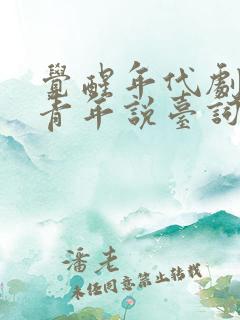 覺醒年代劇
青年說臺詞
潘老
未經同意禁止轉載